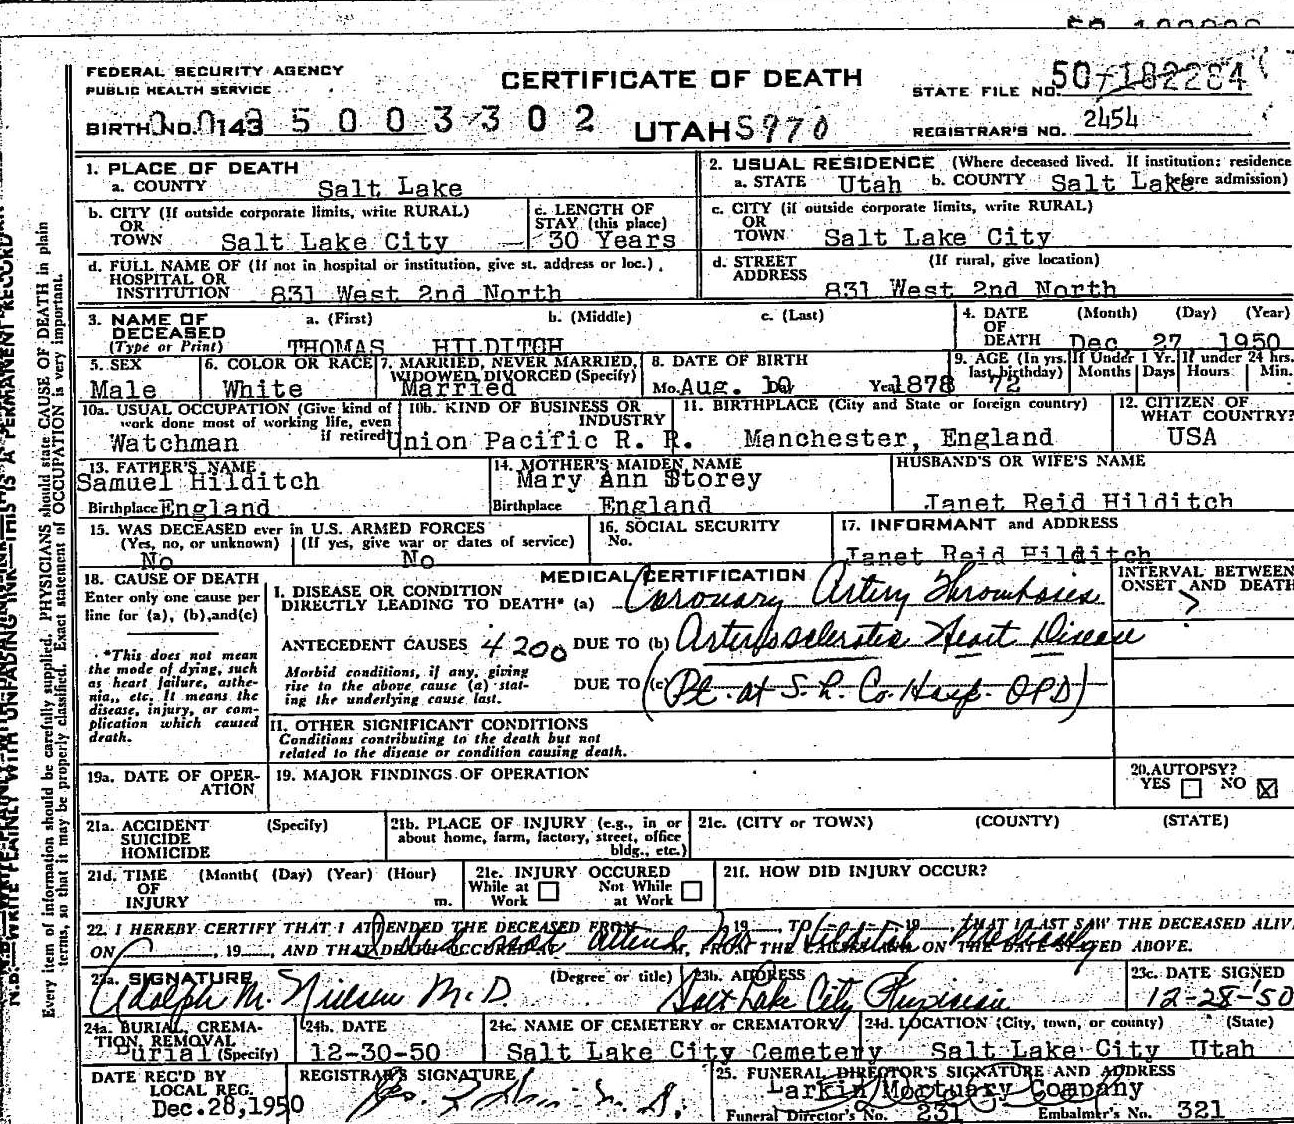 FEDERAL SECURITY AGENCY
PUBLIC HEALTH SERVICE
CERTIFICATE OF DEATH
STATE FILE NO. 50-182284
BIRTH NO. 0143 5003302 UTAH S970
REGISTRAR'S NO. 2454
1. PLACE OF DEATH
a. COUNTY Salt Lake
2. USUAL RESIDENCE (Where deceased lived. If institution: residence before admission)
a. STATE Utah b. COUNTY Salt Lake
b. CITY (If outside corporate limits, write RURAL)
OR
TOWN Salt Lake City
c. LENGTH OF
STAY (this place)
30 Years
c. CITY (if outside corporate limits, write RURAL)
OR
TOWN Salt Lake City
d. FULL NAME OF (If not in hospital or institution, give st. address or loc.)
HOSPITAL OR
INSTITUTION 831 West 2nd North
d. STREET (If rural, give location)
ADDRESS
831 West 2nd North
3. NAME OF
DECEASED
(Type or Print)
a. (First) b. (Middle) c. (Last)
THOMAS HILDITCH
4. DATE (Month) (Day) (Year)
OF
DEATH Dec 27 1950
5. SEX
Male
6. COLOR OR RACE
White
7. MARRIED, NEVER MARRIED,
WIDOWED, DIVORCED (Specify)
Married
8. DATE OF BIRTH
Mo. Aug. Day 10 Year 1878
9. AGE (In yrs. last birthday)
72
If Under 1 Yr.
Months Days
If under 24 hrs.
Hours Min.
10a. USUAL OCCUPATION (Give kind of
work done most of working life, even
if retired)
Watchman
10b. KIND OF BUSINESS OR
INDUSTRY
Union Pacific R. R.
11. BIRTHPLACE (City and State or foreign country)
Manchester, England
12. CITIZEN OF
WHAT COUNTRY?
USA
13. FATHER'S NAME
Samuel Hilditch
Birthplace England
14. MOTHER'S MAIDEN NAME
Mary Ann Storey
Birthplace England
HUSBAND'S OR WIFE'S NAME
Janet Reid Hilditch
15. WAS DECEASED ever in U.S. ARMED FORCES
(Yes, no, or unknown) (If yes, give war or dates of service)
No No
16. SOCIAL SECURITY
No.
17. INFORMANT and ADDRESS
Janet Reid Hilditch
18. CAUSE OF DEATH
Enter only one cause per
line for (a), (b), and (c)
*This does not mean
the mode of dying, such
as heart failure, asthe-
nia, etc. It means the
disease, injury, or com-
plication which caused
death.
MEDICAL CERTIFICATION
I. DISEASE OR CONDITION
DIRECTLY LEADING TO DEATH* (a) Coronary Artery Thrombosis
ANTECEDENT CAUSES 4200 DUE TO (b) Arteriosclerotic Heart Disease
Morbid conditions, if any, giving
rise to the above cause (a) stat-
ing the underlying cause last.
DUE TO (c) (Pt. at S. L. Co. Hosp. OPD)
INTERVAL BETWEEN
ONSET AND DEATH
?
II. OTHER SIGNIFICANT CONDITIONS
Conditions contributing to the death but not
related to the disease or condition causing death.
19a. DATE OF OPER-
ATION
19. MAJOR FINDINGS OF OPERATION
20. AUTOPSY?
YES NO
21a. ACCIDENT (Specify)
SUICIDE
HOMICIDE
21b. PLACE OF INJURY (e.g., in or
about home, farm, factory, street, office
bldg., etc.)
21c. (CITY or TOWN) (COUNTY) (STATE)
21d. TIME (Month( (Day) (Year) (Hour)
OF
INJURY m.
21e. INJURY OCCURED
While at Not While
Work at Work
21f. HOW DID INJURY OCCUR?
22. I HEREBY CERTIFY THAT I ATTENDED THE DECEASED FROM 19 , TO 19 , THAT I LAST SAW THE DECEASED ALIVE
ON , 19 , AND THAT DEATH OCCURED AT M., FROM THE CAUSES AND ON THE DATE STATED ABOVE.
I did not attend
23a. SIGNATURE (Degree or title)
Adolph M. Nielsen M.D.
23b. ADDRESS
Salt Lake City Physician
23c. DATE SIGNED
12-28-50
24a. BURIAL, CREMA-
TION, REMOVAL
Burial (Specify)
24b. DATE
12-30-50
24c. NAME OF CEMETERY or CREMATORY
Salt Lake City Cemetery
24d. LOCATION (City, town, or county) (State)
Salt Lake City Utah
DATE REC'D BY
LOCAL REG.
Dec. 28, 1950
REGISTRAR'S SIGNATURE
25. FUNERAL DIRECTOR'S SIGNATURE AND ADDRESS
Larkin Mortuary Company
Funeral Director's No. 231 Embalmer's No. 321
Every item of information should be carefully supplied. PHYSICIANS should state CAUSE OF DEATH in plain
terms, so that it may be properly classified. Exact statement of OCCUPATION is very important.
N.B. WRITE PLAINLY WITH UNFADING INK THIS IS A PERMANENT RECORD